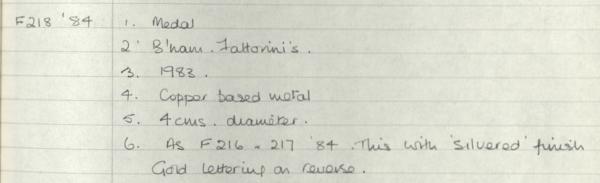 F218 '84 1. Medal
2. B'ham. Fattorini's.
3. 1983.
4. Copper based metal
5. 4cms. diameter.
6. As F216 - 217 '84. This with 'silvered' finish
Gold lettering on reverse.